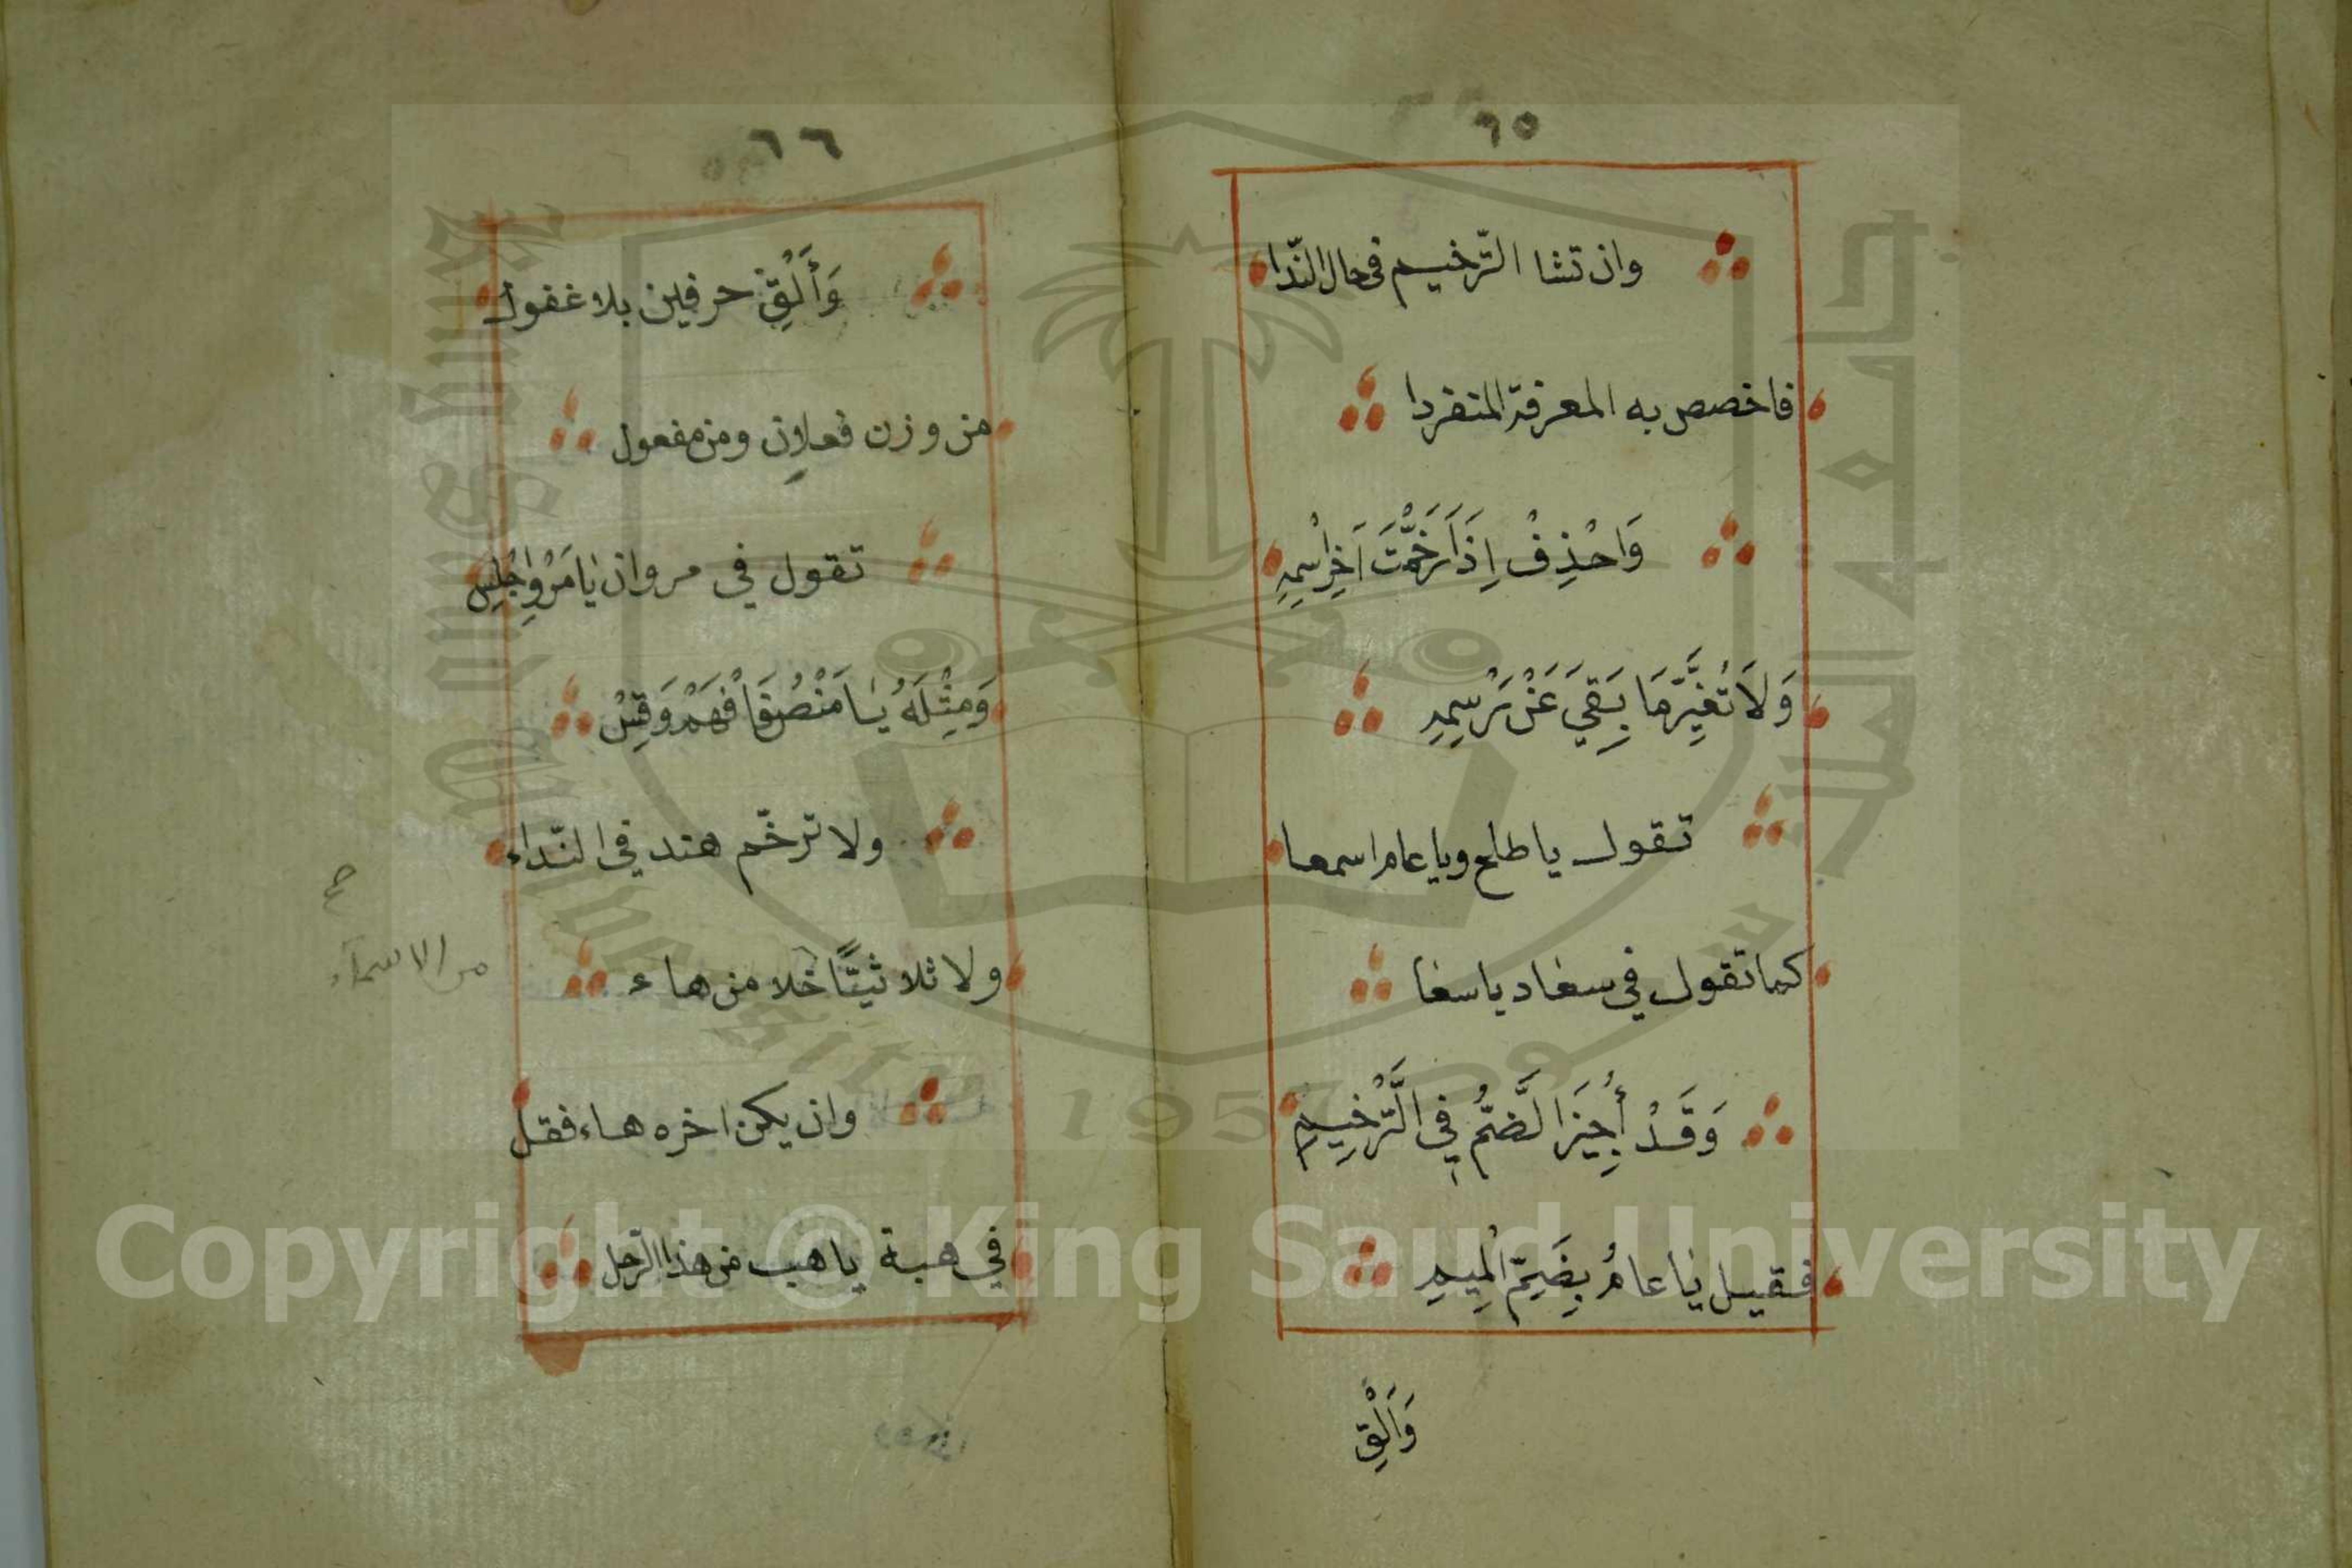 ٦٥
وان تشا الترّخيم في حال النّدا
فاخصص به المعرفة المنفردا
وَاحْذِفْ اِذَا رَخَّمْتَ آخِرَ اسْمِهِ
وَلَا تُغَيِّرْ مَا بَقِيَ عَنْ رَسْمِهِ
تقول يا طلح ويا عام اسمعا
كما تقول في سعاد يا سعا
وَقَدْ أُجِيْزَ الضَّمُّ فِي التَّرْخِيمِ
فقيل يا عامُ بِضَمِّ الْمِيمِ
وَأَلْقِ
٦٦
وَأَلْقِ حرفين بلا غفول
من وزن فعلان ومن مفعول
تقول في مروان يا مَرْوَ اجْلِسِ
وَمِثْلَهُ يَا مَنْصُ فَافْهَمْ وَقِسْ
ولا ترخّم هند في النّداء
ولا ثلاثيًّا خلا من هاء
من الاسماء
وان يكن اخره هاء فقل
في هبة يا هب من هذا الرجل
Copyright © King Saud University
1957